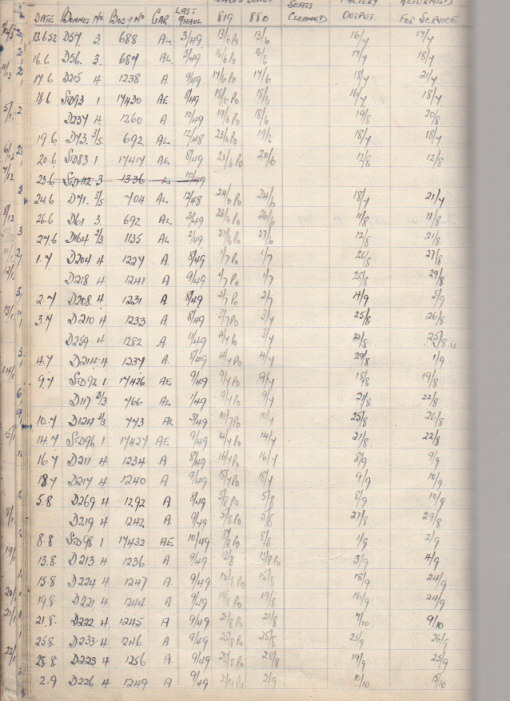 DATE BONNET No BODY No CAR LAST OVERHAUL 819 880 SEATS CLEANED FACTORY OUTPUT RETURNED FOR SERVICE
13.6.52 D57 3 688 AL 3/49 13/6 Po 13/6 16/7 17/7
16.6 D56 3 687 AL 3/49 16/6 Po 16/6 17/7 18/7
17.6 D215 4 1238 A 9/49 17/6 Po 17/6 18/7 21/7
18.6 STD93 1 17430 AE 8/49 18/6 Po 18/6 16/7 18/7
D237 4 1260 A 10/49 19/6 Po 18/6 19/8 20/8
19.6 D72 3/5 692 AL 12/48 23/6 Po 19/6 18/7 18/7
20.6 STD83 1 17417 AE 8/49 23/6 Po 20/6 12/8 12/8
23.6 STD112 3 1336 10/49
24.6 D71 3/5 704 AL 12/48 24/6 Po 24/6 18/7 21/7
26.6 D61 3 692 AL 3/49 26/6 Po 26/6 11/8 11/8
27.6 D164 2/3 1135 AL 27/6 Po 27/6 12/8 21/8
1.7 D204 4 1227 A 8/49 1/7 Po 1/7 26/8 27/8
D218 4 1241 A 9/49 1/7 Po 1/7 28/8 29/8
2.7 D208 4 1231 A 8/49 2/7 Po 2/7 4/9 5/9
3.7 D210 4 1233 A 8/49 3/7 Po 3/7 25/8 26/8
D259 4 1282 A 1/49 4/7 Po 3/7 25/8
4.7 D214 4 1237 A 9/49 4/7 Po 4/7 29/8 1/9
9.7 STD92 1 17426 AE 9/49 9/7 Po 9/7 18/8 19/8
D117 2/3 766 AL 9/49 9/7 Po 9/7 21/8 22/8
10.7 D124 2/3 773 AL 3/49 10/7 Po 11/7 25/8 26/8
14.7 STD96 1 17427 AE 9/49 14/7 Po 14/7 21/8 22/8
16.7 D211 4 1234 A 8/49 14/7 Po 16/7 8/9 9/9
18.7 D217 4 1240 A 9/49 18/7 Po 18/7 9/9 10/9
5.8 D269 4 1292 A 8/49 5/8 Po 5/8 8/9 10/9
D219 4 1242 A 9/49 5/8 Po 5/8 27/8 29/8
8.8 STD98 1 17432 AE 10/49 8/8 Po 8/8 1/9 2/9
13.8 D213 4 1236 A 9/49 13/8 13/8 Po 3/9 4/9
15.8 D224 4 1247 A 9/49 15/8 Po 15/8 18/9 24/9
19.8 D221 4 1244 A 9/49 19/8 Po 19/8 16/9 24/9
21.8 D222 4 1245 A 9/49 21/8 Po 21/8 7/10 9/10
25.8 D233 4 1246 A 9/49 25/8 Po 25/8 25/9 26/9
28.8 D223 4 1256 A 9/49 28/8 Po 28/8 19/9 25/9
2.9 D226 4 1249 A 9/49 2/9 Po 2/9 10/10 15/10